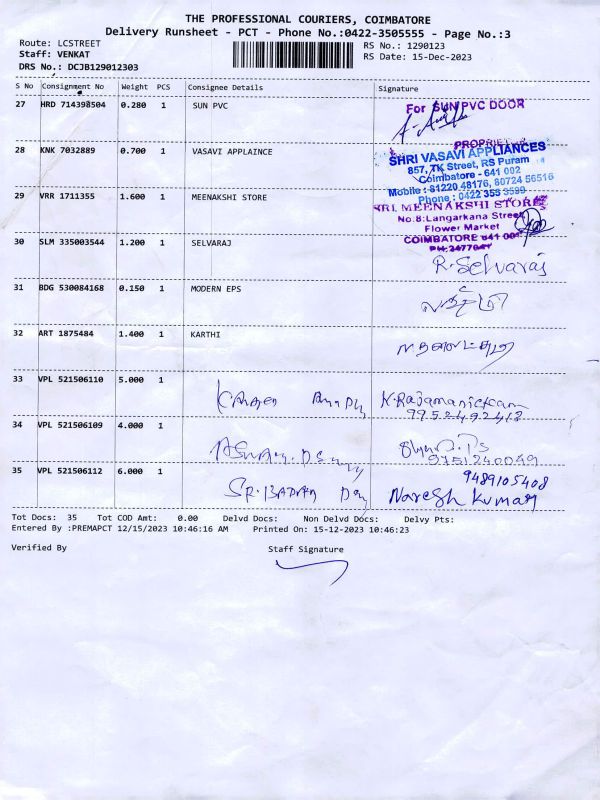 THE PROFESSIONAL COURIERS, COIMBATORE
Delivery Runsheet - PCT - Phone No.:0422-3505555 - Page No.:3
Route: LCSTREET
RS No.: 1290123
Staff: VENKAT
RS Date: 15-Dec-2023
DRS No.: DCJB129012303
S No Consignment No Weight PCS Consignee Details Signature
27 HRD 714398504 0.280 1 SUN PVC
For SUN PVC DOOR
PROPRIET
28 KNK 7032889 0.700 1 VASAVI APPLAINCE
SHRI VASAVI APPLIANCES
857, TK Street, RS Puram
Coimbatore - 641 002
Mobile : 81220 48176, 80724 56516
Phone : 0422 355 3599
29 VRR 1711355 1.600 1 MEENAKSHI STORE
SRI MEENAKSHI STORE
No.8:Langarkana Street
Flower Market
COIMBATORE 641 001
30 SLM 335003544 1.200 1 SELVARAJ
R. Selvaraj
31 BDG 530084168 0.150 1 MODERN EPS
32 ART 1875484 1.400 1 KARTHI
33 VPL 521506110 5.000 1
K. Rajamanickam
9952492412
34 VPL 521506109 4.000 1
9751240049
35 VPL 521506112 6.000 1
9489105408
Naresh Kumar
Tot Docs: 35 Tot COD Amt: 0.00 Delvd Docs: Non Delvd Docs: Delvy Pts:
Entered By :PREMAPCT 12/15/2023 10:46:16 AM Printed On: 15-12-2023 10:46:23
Verified By Staff Signature